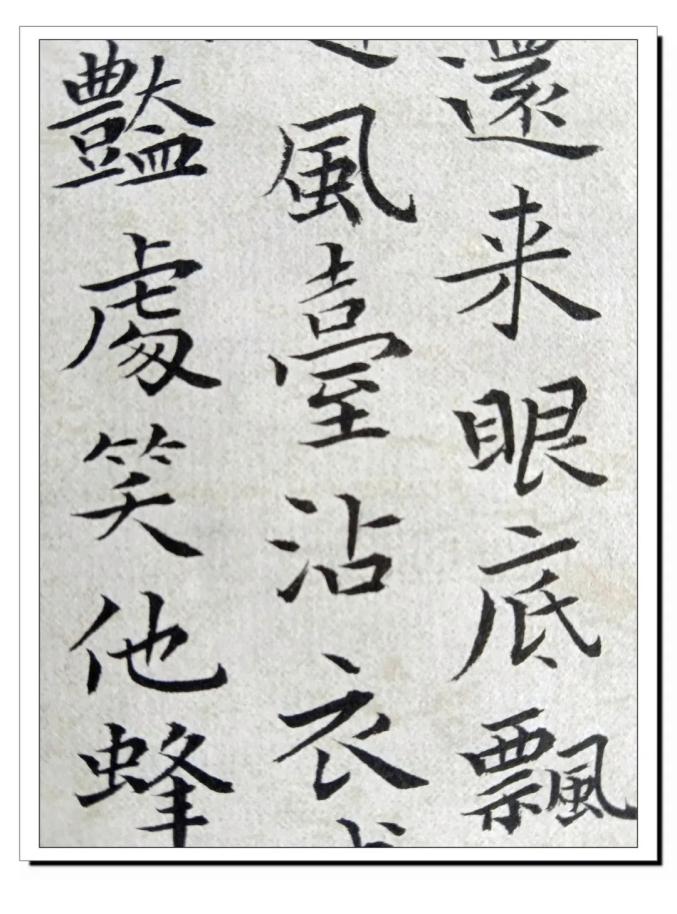 還来眼底飄
風臺沾衣
豓處笑他蜂